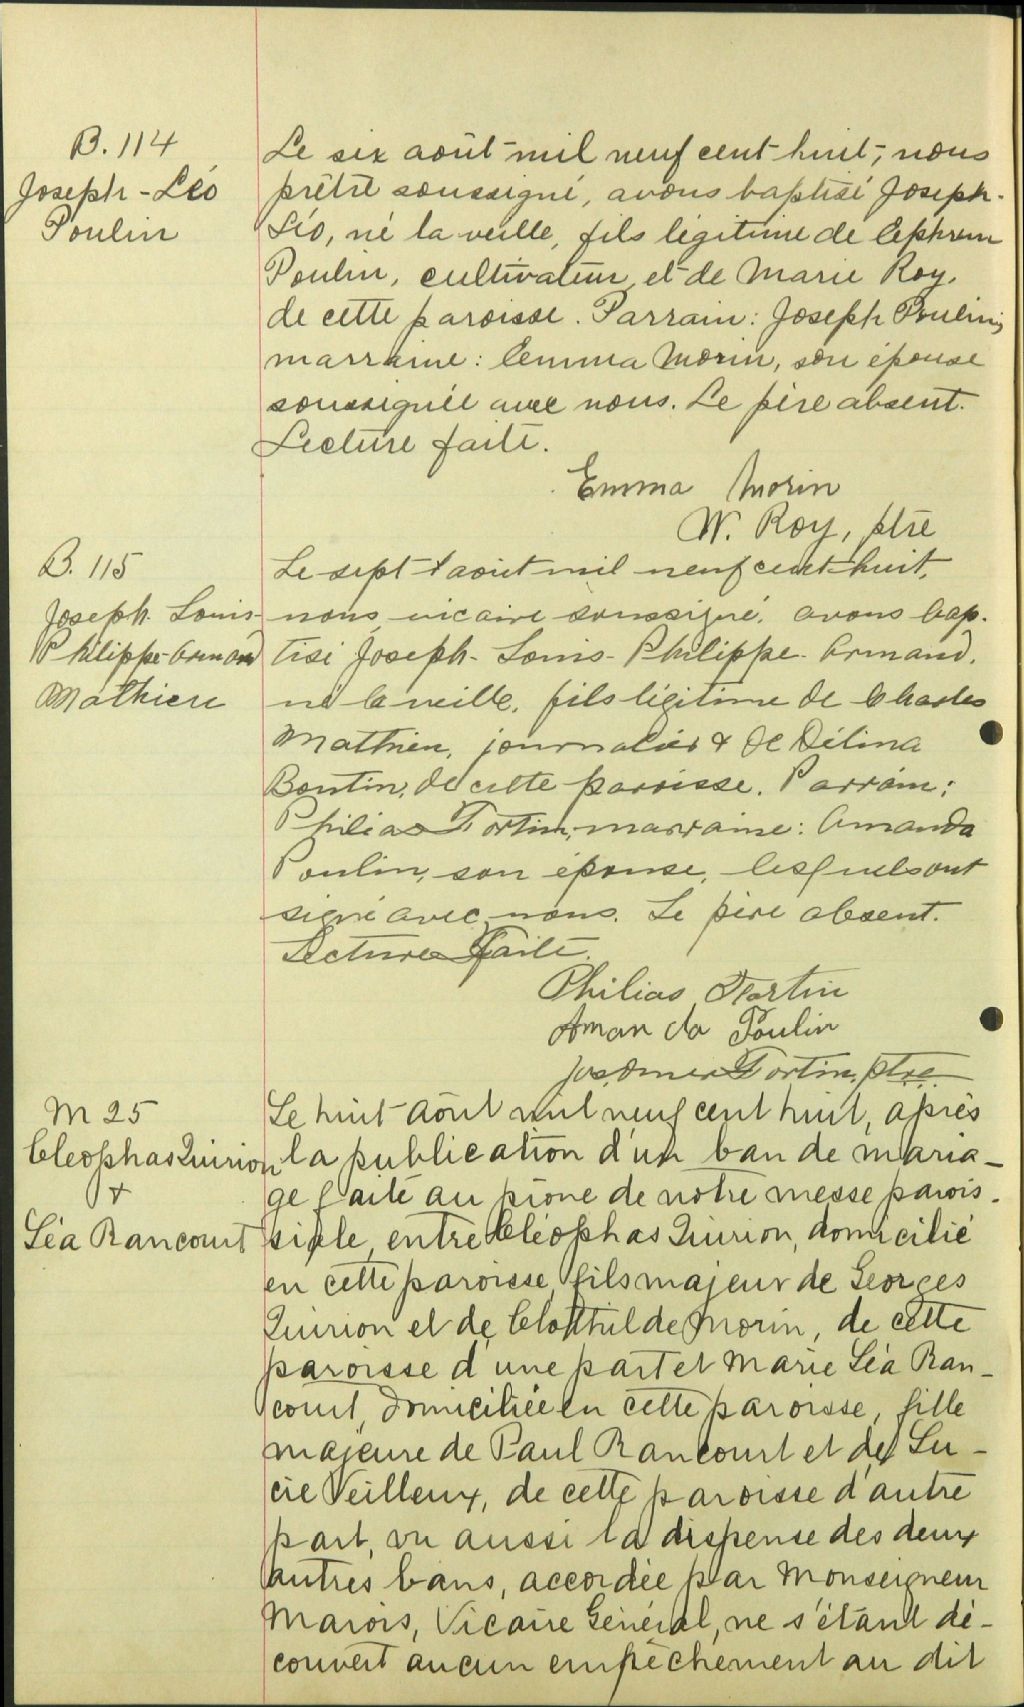 B. 114
Joseph-Léo
Poulin
Le six août mil neuf cent huit, nous
prêtre soussigné, avons baptisé Joseph-
Léo, né la veille, fils légitime de Ephrem
Poulin, cultivateur, et de Marie Roy,
de cette paroisse. Parrain: Joseph Poulin,
marraine: Emma Morin, son épouse
soussignée avec nous. Le père absent.
Lecture faite.
Emma Morin
W. Roy, ptre
B. 115
Joseph-Louis-
Philippe-Armand
Mathieu
Le sept août mil neuf cent huit,
nous vicaire soussigné, avons bap-
tisé Joseph-Louis-Philippe-Armand,
né la veille, fils légitime de Charles
Mathieu, journalier & de Délina
Boutin, de cette paroisse. Parrain:
Philias Fortin, marraine: Amanda
Poulin, son épouse, lesquels ont
signé avec nous. Le père absent.
Lecture faite.
Philias Fortin
Amanda Poulin
Jos. Omer Fortin, ptre.
M 25
Cleophas Quirion
&
Léa Rancourt
Le huit août mil neuf cent huit, après
la publication d'un ban de maria-
ge faite au prône de notre messe parois-
siale, entre Cléophas Quirion, domicilié
en cette paroisse, fils majeur de Georges
Quirion et de Clothilde Morin, de cette
paroisse d'une part et Marie Léa Ran-
court, domiciliée en cette paroisse, fille
majeure de Paul Rancourt et de Lu-
cie Veilleux, de cette paroisse d'autre
part, vu aussi la dispense des deux
autres bans, accordée par Monseigneur
Marois, Vicaire Général, ne s'étant dé-
couvert aucun empêchement au dit